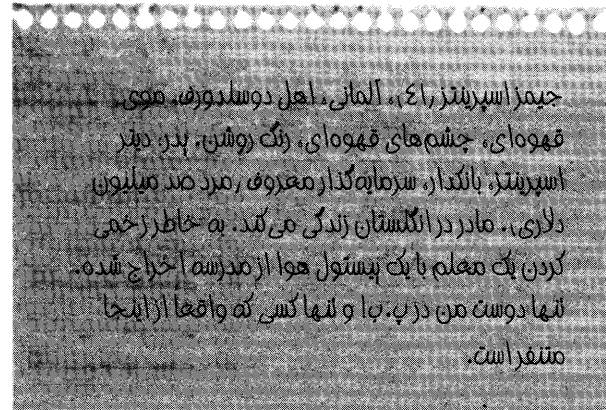 جیمز اسپرینتز (۱٤)، آلمانی، اهل دوسلدورف، موی
قهوه‌ای، چشم‌های قهوه‌ای، رنگ روشن. پدر: دیتر
اسپرینتز، بانکدار، سرمایه‌گذار معروف (مرد صد میلیون
دلاری). مادر در انگلستان زندگی می‌کند. به خاطر زخمی
کردن یک معلم با یک پیستول هوا از مدرسه اخراج شده.
تنها دوست من در پ.ب! و تنها کسی که واقعا از اینجا
متنفر است.